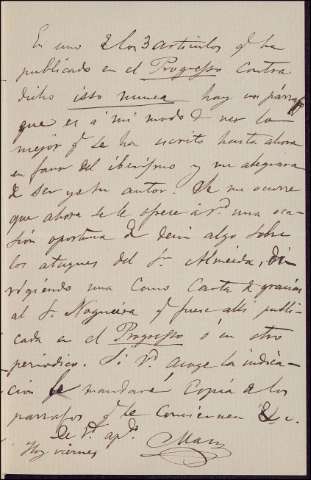 En uno d los 3 articulos q ha
publicado en el Progresso contra
dicho isso nunca hay un párrafo
que es á mi modo d ver lo
mejor q se ha escrito hasta ahora
en favor del iberismo y me alegrara
d ser yo su autor. Se me ocurre
que ahora se le ofrece á V. una oca-
sión oportuna d decir algo sobre
los ataques del Sr. Almeida, di-
rigiendo una como carta d gracias
al Sr. Nogueira q fuese allí publi-
cada en el Progresso ó en otro
periodico. Si V. acoge la indica-
ción le mandaré copia d los
parrafos q le convienen &c.
De V. ap.
Hoy viernes